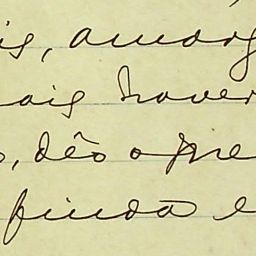 is, amarg
ais haver
, dês o pre
finda e